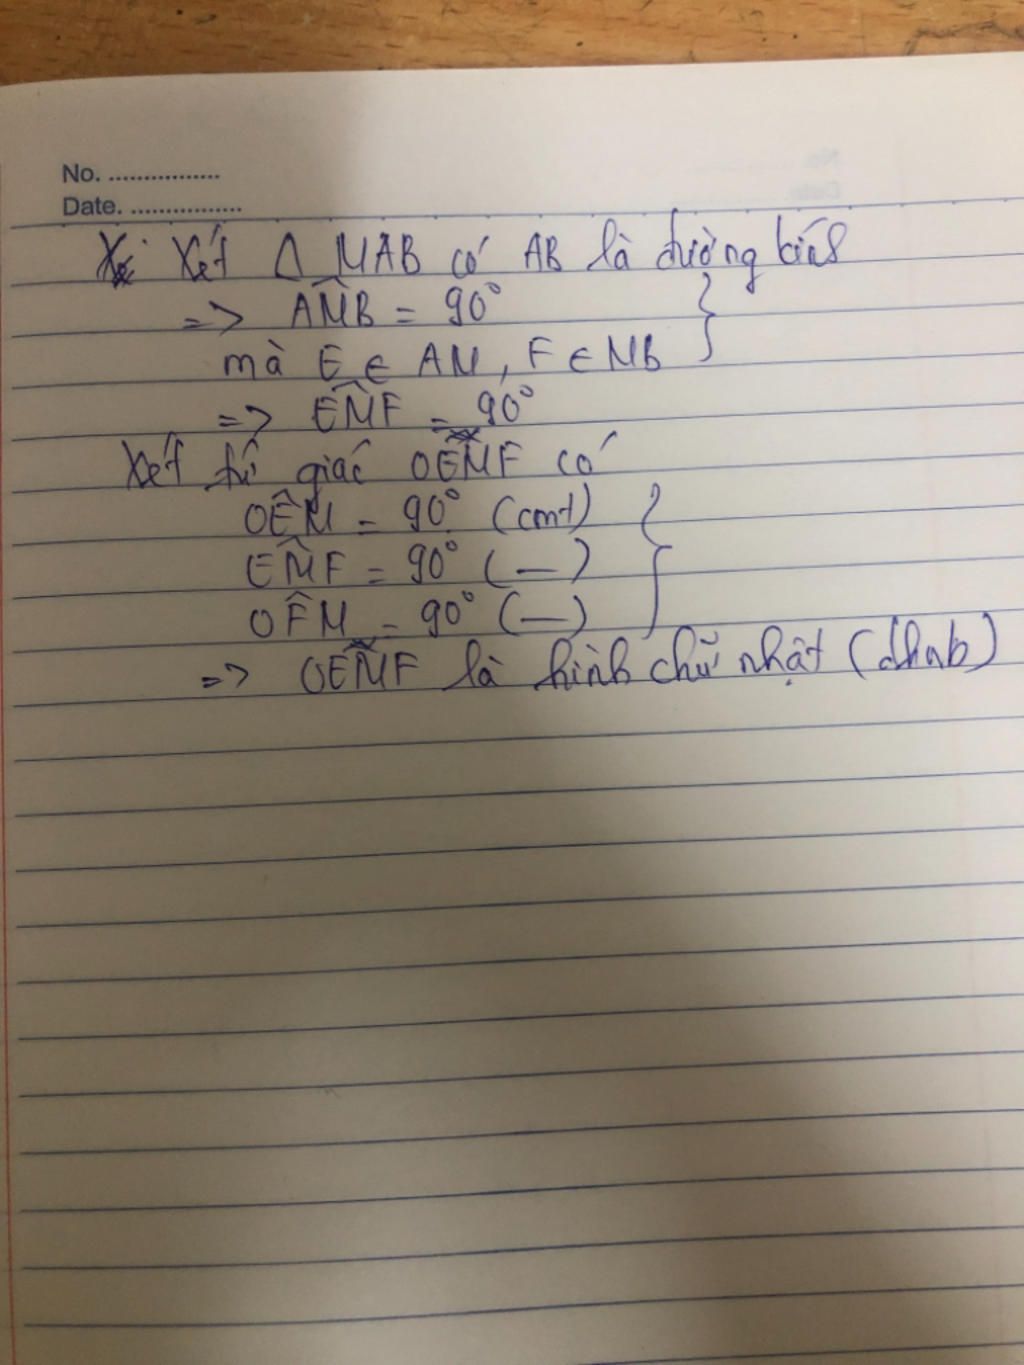 No. ................
Date. ................
Xét Δ MAB có AB là đường kính
=> AM̂B = 90°
mà E ∈ AM, F ∈ MB
=> EM̂F = 90°
Xét tứ giác OEMF có
OÊM = 90° (cmt)
EM̂F = 90° (—)
OF̂M = 90° (—)
=> OEMF là hình chữ nhật (dhnb)